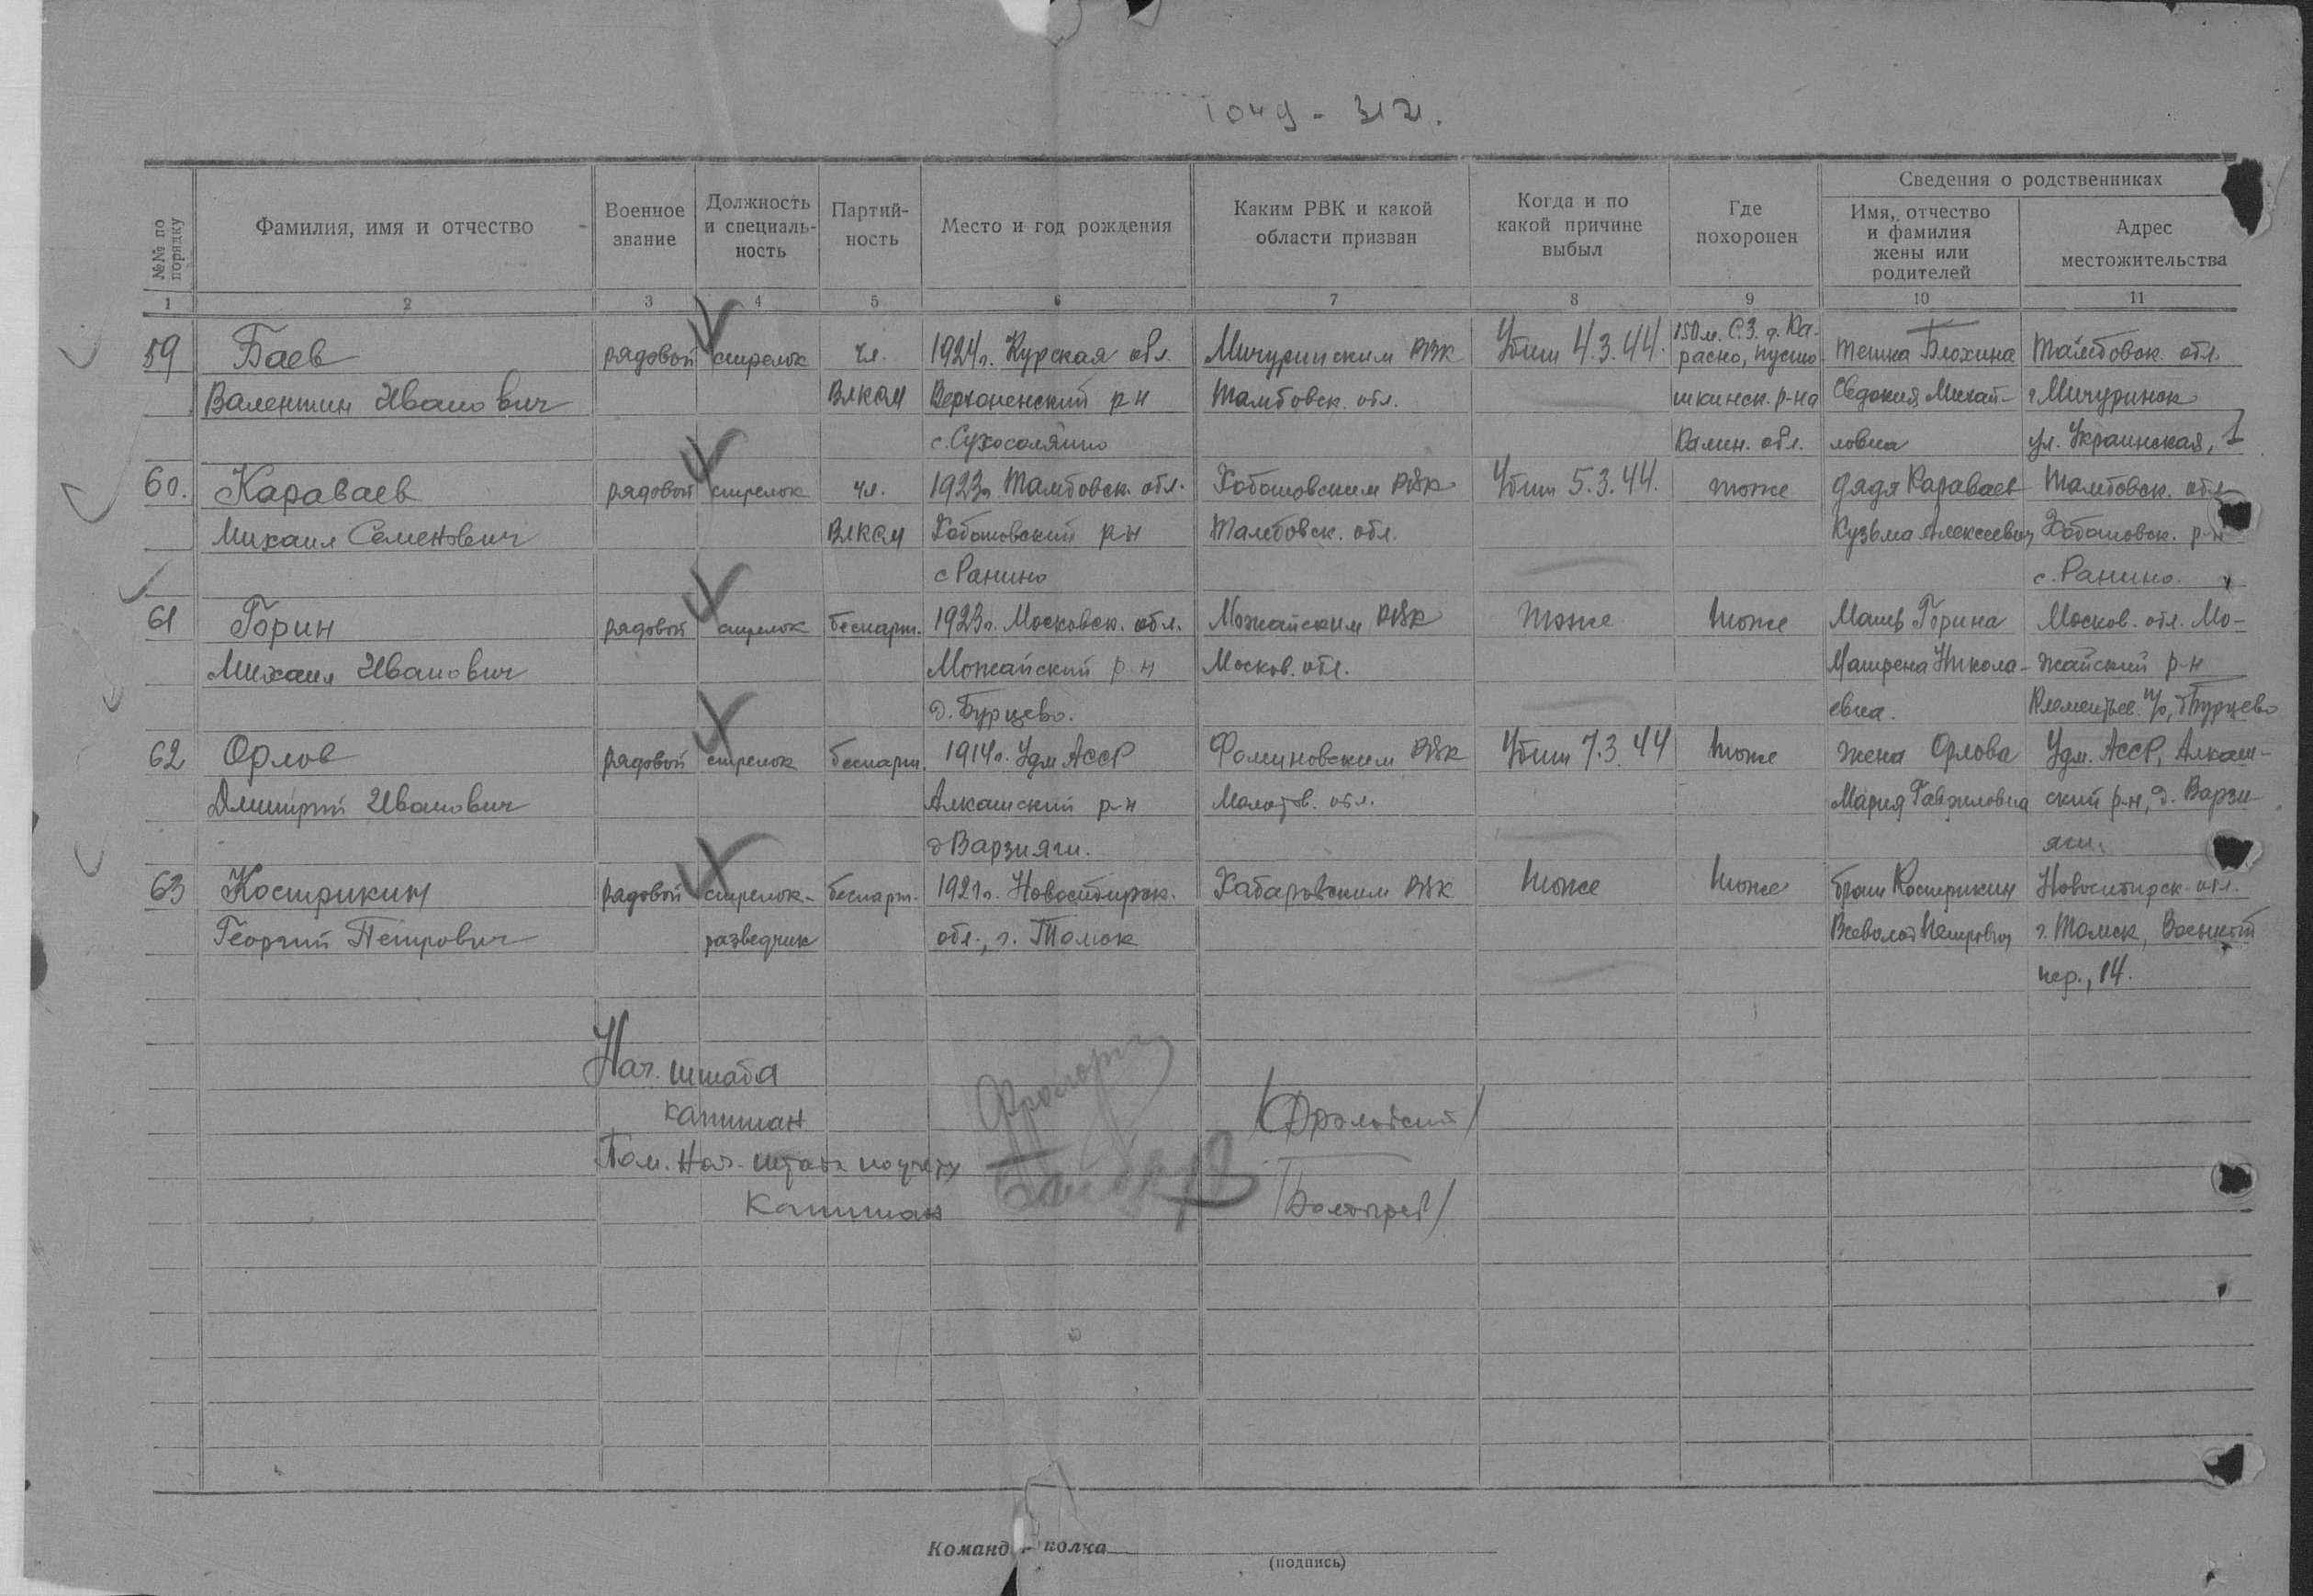 1049 - 312.
№№ по порядку
Фамилия, имя и отчество
Военное звание
Должность и специаль-ность
Партий-ность
Место и год рождения
Каким РВК и какой области призван
Когда и по какой причине выбыл
Где похоронен
Сведения о родственниках
Имя, отчество и фамилия жены или родителей
Адрес местожительства
1 2 3 4 5 6 7 8 9 10 11
59 Баев рядовой стрелок чл. 1924г. Курская обл. Мичуринским РВК Убит 4.3.44. 150 м. С.З. д. Ка-расно, Пусто тетка Блохина Тамбовск. обл.
Валентин Иванович ВЛКСМ р-н Тамбовск. обл. шкинск. р-на Евдокия Михай- г. Мичуринск
с. Сухосолятино Калин. обл. ловна ул. Украинская, 1
60. Караваев рядовой стрелок чл. 1923г. Тамбовск. обл. Хоботовским РВК Убит 5.3.44. тоже дядя Караваев Тамбовск. обл.
Михаил Семенович ВЛКСМ Хоботовский р-н Тамбовск. обл. Кузьма Алексеевич Хоботовск. р-н
с Ранино с. Ранино.
61 Горин рядовой стрелок беспарт. 1923г. Московск. обл. Можайским РВК тоже тоже Мать Горина Москов. обл. Мо-
Михаил Иванович Можайский р-н Москов. обл. Матрена Никола- жайский р-н
д. Бурцево. евна. Клементьев. п/о, д Бурцево
62 Орлов рядовой стрелок беспарт. 1914г. Удм АССР Фоминовским РВК Убит 7.3.44 тоже жена Орлова Удм. АССР, Алкаш-
Дмитрий Иванович Алкашский р-н Молотов. обл. Мария Гавриловна ский р-н, д. Варзи-
д Варзияги. яги.
63 Кострикин рядовой стрелок- беспарт. 1921г. Новосибирск. Хабаровским РВК тоже тоже брат Кострикин Новосибирск. обл.
Георгий Петрович разведчик обл., г. Томск Всеволод Петрович г. Томск,
пер., 14.
Нач. штаба
капитан
Пом. Нач. штаба по учету
Капитан
Команд. полка
(подпись)